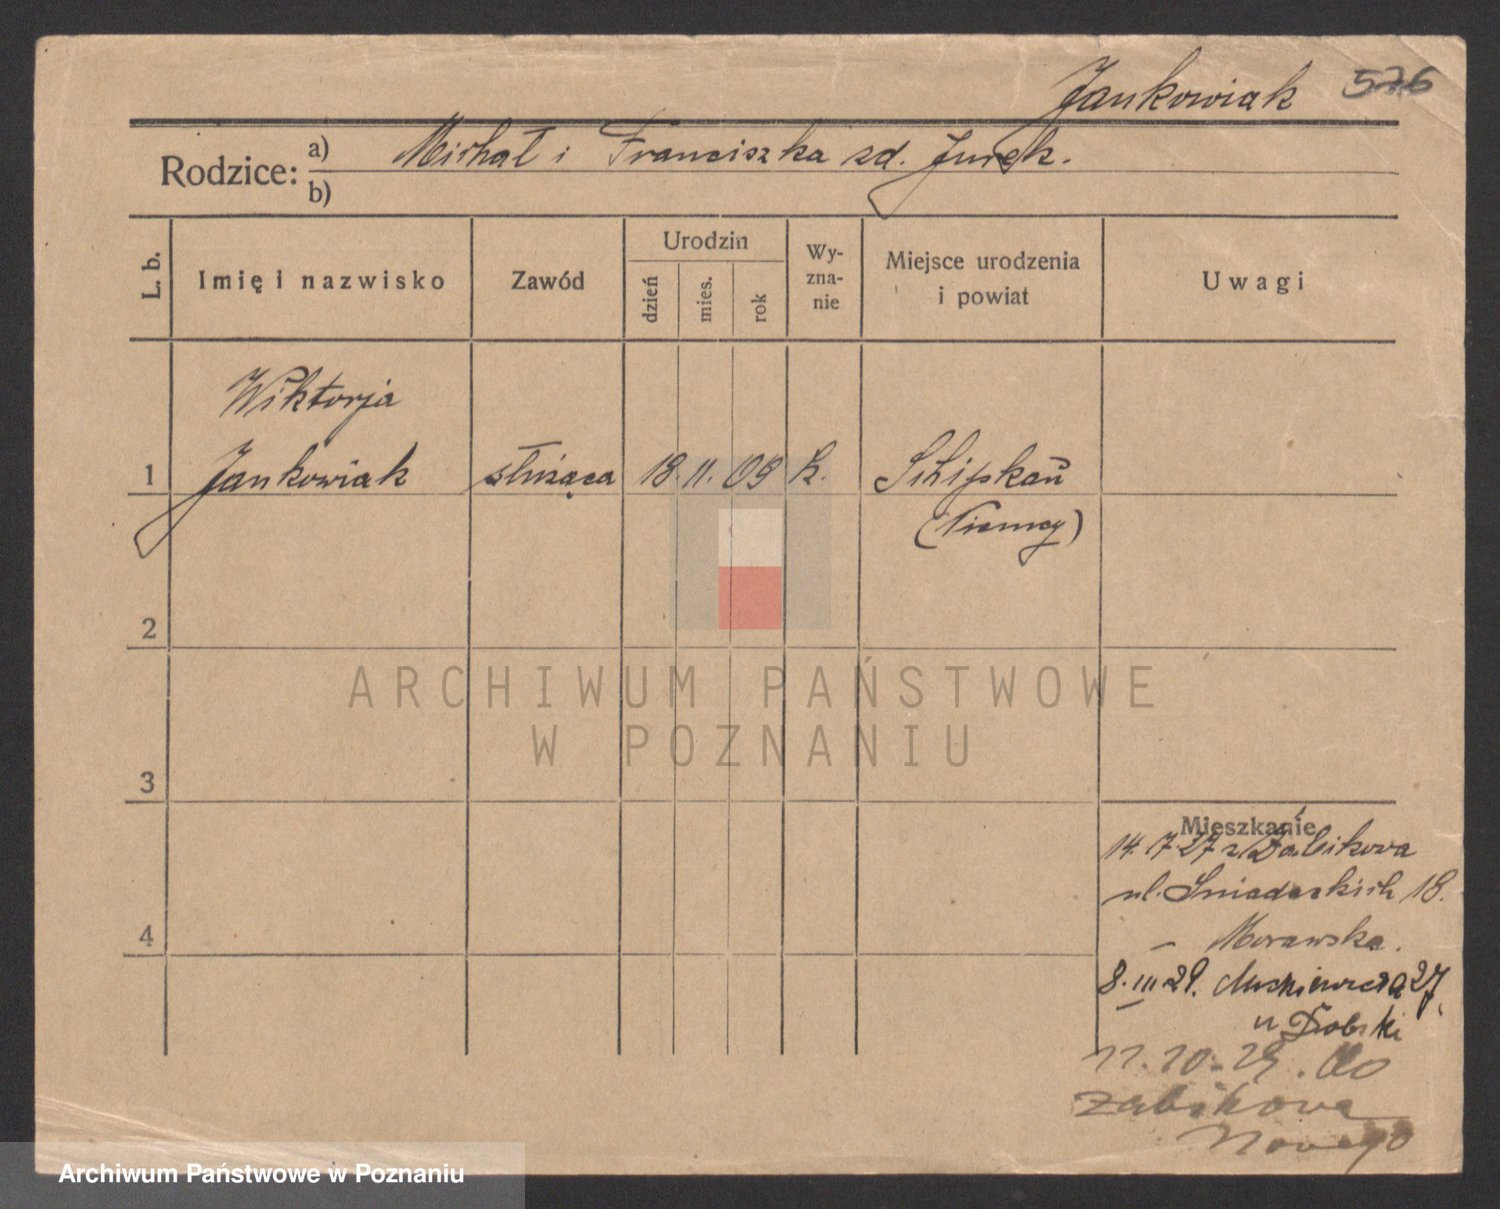 Jankowiak 576
Rodzice: a) Michał i Franciszka zd. Jurek.
b)
L. b. Imię i nazwisko Zawód Urodzin dzień mies. rok Wy-zna-nie Miejsce urodzenia i powiat Uwagi
Wiktorja
1 Jankowiak służąca 18. 11. 09 k. Schipkau
(Niemcy)
2
ARCHIWUM PAŃSTWOWE
W POZNANIU
3
Mieszkanie
14. 7. 27 z Żabikowa
ul. Śniadeckich 18.
4
– Morawska.
8. III 29. 27
u
11. 10. 29. do
Zabikowa
Nowego
Archiwum Państwowe w Poznaniu